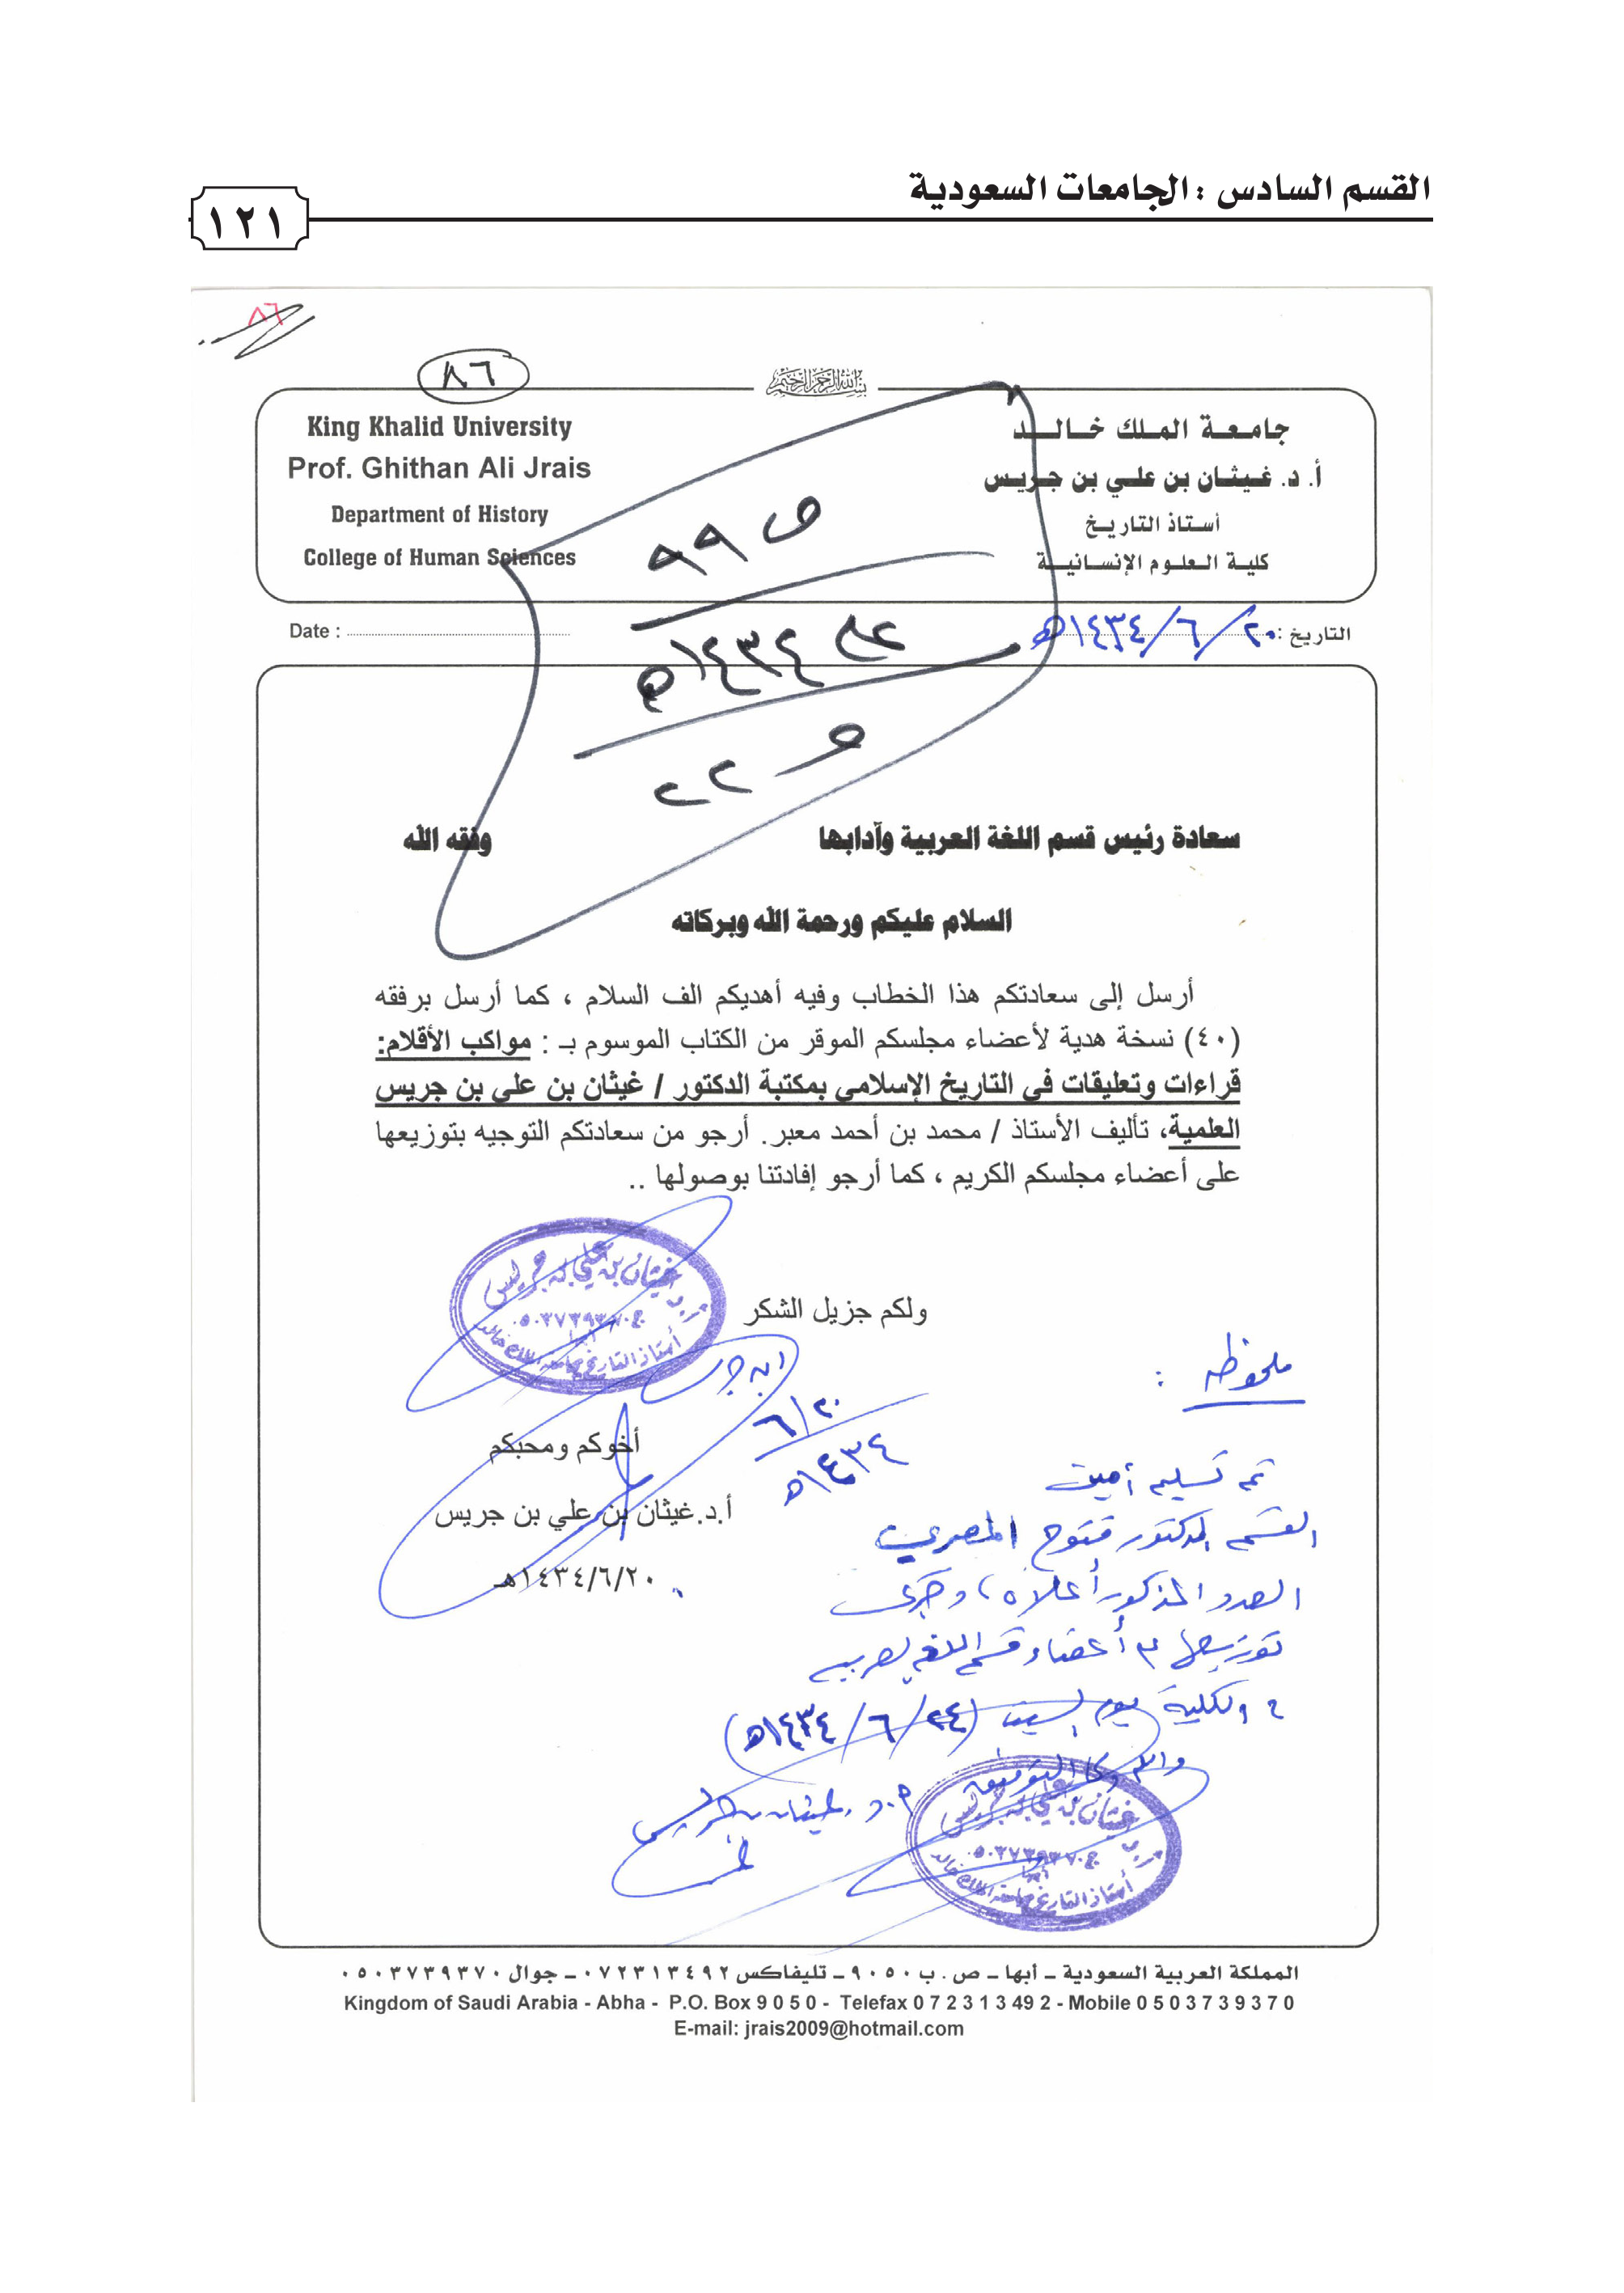 القسم السادس : الجامعات السعودية
١٢١
٨٦
٨٦
بسم الله الرحمن الرحيم
King Khalid University
Prof. Ghithan Ali Jrais
Department of History
College of Human Sciences
جامعة الملك خالد
أ. د. غيثان بن علي بن جريس
أستاذ التاريخ
كلية العلوم الإنسانية
ص ٩٩
١٤٣٤هـ
٢٢
Date :
التاريخ : ٢٠/٦/١٤٣٤هـ
سعادة رئيس قسم اللغة العربية وآدابها وفقه الله
السلام عليكم ورحمة الله وبركاته
أرسل إلى سعادتكم هذا الخطاب وفيه أهديكم الف السلام ، كما أرسل برفقه
(٤٠) نسخة هدية لأعضاء مجلسكم الموقر من الكتاب الموسوم بـ : مواكب الأقلام:
قراءات وتعليقات في التاريخ الإسلامي بمكتبة الدكتور / غيثان بن علي بن جريس
العلمية، تأليف الأستاذ / محمد بن أحمد معبر. أرجو من سعادتكم التوجيه بتوزيعها
على أعضاء مجلسكم الكريم ، كما أرجو إفادتنا بوصولها ..
أ.د غيثان بن علي بن جريس
ج ٠٥٠٣٧٣٩٣٧٠
أبها
أستاذ التاريخ بجامعة الملك خالد
ولكم جزيل الشكر
ابن جريس
٢٠/٦
١٤٣٤هـ
أخوكم ومحبكم
أ.د.غيثان بن علي بن جريس
١٤٣٤/٦/٢٠هـ
ملحوظة :
تم تسليم أمين
القسم الدكتور فتوح المصري
العدد المذكور أعلاه، وجرى
توزيعها على أعضاء قسم اللغة العربية
والكلية يوم السبت (٢٤/٦/١٤٣٤هـ)
والله ولي التوفيق
أ.د. غيثان بن جريس
أ.د غيثان بن علي بن جريس
ج ٠٥٠٣٧٣٩٣٧٠
أبها
أستاذ التاريخ بجامعة الملك خالد
المملكة العربية السعودية ـ أبها ـ ص . ب ٩٠٥٠ ـ تليفاكس ٠٧٢٣١٣٤٩٢ ـ جوال ٠٥٠٣٧٣٩٣٧٠
Kingdom of Saudi Arabia - Abha - P.O. Box 9 0 5 0 - Telefax 0 7 2 3 1 3 49 2 - Mobile 0 5 0 3 7 3 9 3 7 0
E-mail: jrais2009@hotmail.com